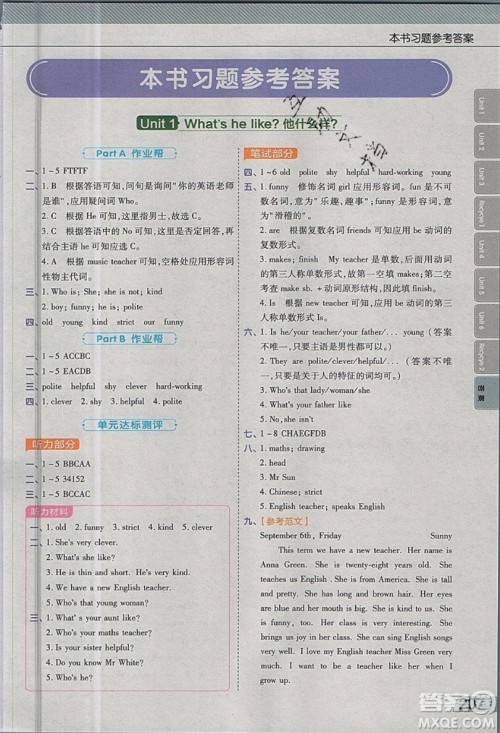 本书习题参考答案
本书习题参考答案
Unit 1 What's he like? 他什么样?
Part A 作业帮
一、1-5 FTFTF
二、1. B 根据答语可知, 问句是询问"你的英语老师
是谁", 应用疑问词 Who。
2. C 根据 He 可知, 这里指男士, 故选 C。
3. B 根据答语中的 No 可知, 女士不严厉, 再
结合主语 she 可知应选 B。
4. A 根据 music teacher 可知, 空格处应选形容词
性物主代词。
三、1. Who is; She; She is not; kind
2. boy; funny; he is; polite
四、old young kind strict our funny
Part B 作业帮
一、1-5 ACCBC
二、1-5 EABCD
三、polite helpful shy clever hard-working
四、1. clever 2. shy 3. polite 4. helpful
单元达标测评
听力部分
一、1-5 BBCAA
二、1-5 34152
三、1-5 BCCAC
听力材料
一、1. old 2. funny 3. strict 4. kind 5. clever
二、1. She's very clever.
2. What's she like?
3. He is thin and short.
4. We have a new English teacher.
5. Who's that young woman?
三、1. What's your aunt like?
2. Who's your maths teacher?
3. Is your sister helpful?
4. Do you know Mr White?
5. Who's he?
笔试部分
四、1-6 old polite shy helpful hard-working young
五、1. funny 修饰名词 girl 应用形容词。fun 是不可
数名词, 意为"乐趣, 趣事"; funny 是形容词,
意为"滑稽的"。
2. are 根据复数名词 friends 可知应用 be 动词
的复数形式。
3. makes; finish My teacher 是单数, 后面应用动词
的第三人称单数形式, 故第一空填 makes。第二空
考查 make sb+动词原形结构, 因此填 finish。
4. Is 根据 helpful 可知, 应用 be 动词的第三人
称单数形式 Is。
六、1. Is he/your teacher/your father/... young (答案
不唯一, 只要主语是男性都可以。)
2. They are strict/funny/helpful/... (答案不唯
一, 只要是描述人特征的词即可。)
3. Who's that lady/woman/she
4. What's your father like
5. No, she isn't
七、1-8 CHAEGFDB
八、1. maths; drawing
2. head
3. Mr Sun
4. Chinese teacher
5. physics teacher; speaks English
九、【参考范文】
September 6th, Friday Sunny
This term we have a new teacher. Her name is
Anna Green. She is twenty-eight years old. She
teaches us English. She is beautiful. She is tall
and pretty. Her eyes are bright like stars. I like
her eyes and her big mouth. She is kind. She is
funny, too. Her class is interesting. She always
brings us joy in her class. She often helps us. I
like to make friends with her. All of the students
like her. I have a new English teacher Miss Green
now. I like my new teacher very much.
Unit 1
Unit 2
Unit 3
Recycle 1
Unit 4
Unit 5
Unit 6
Recycle 2
答案
207
答案圈
MXQE.COM